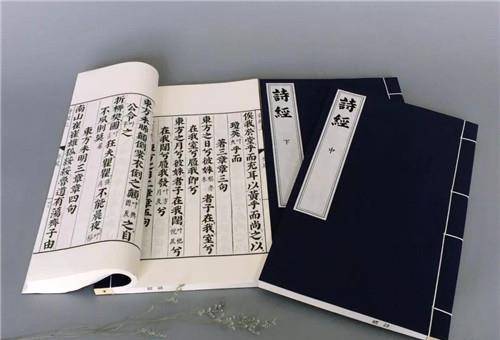 俟我於堂乎而充耳以黃乎而尚之以
瓊英乎而
著三章章三句
東方之日兮彼姝者子在我室兮
在我室兮履我即兮
東方之月兮彼姝者子在我闥兮
在我闥兮履我發兮
東方之日二章章五句
東方未晞顛倒裳衣倒之顛之自
公令之
折柳樊圃狂夫瞿瞿不能晨夜
不夙則莫
東方未明三章章四句
南山崔崔雄狐綏綏魯道有蕩齊子由
詩經
下
詩經
中